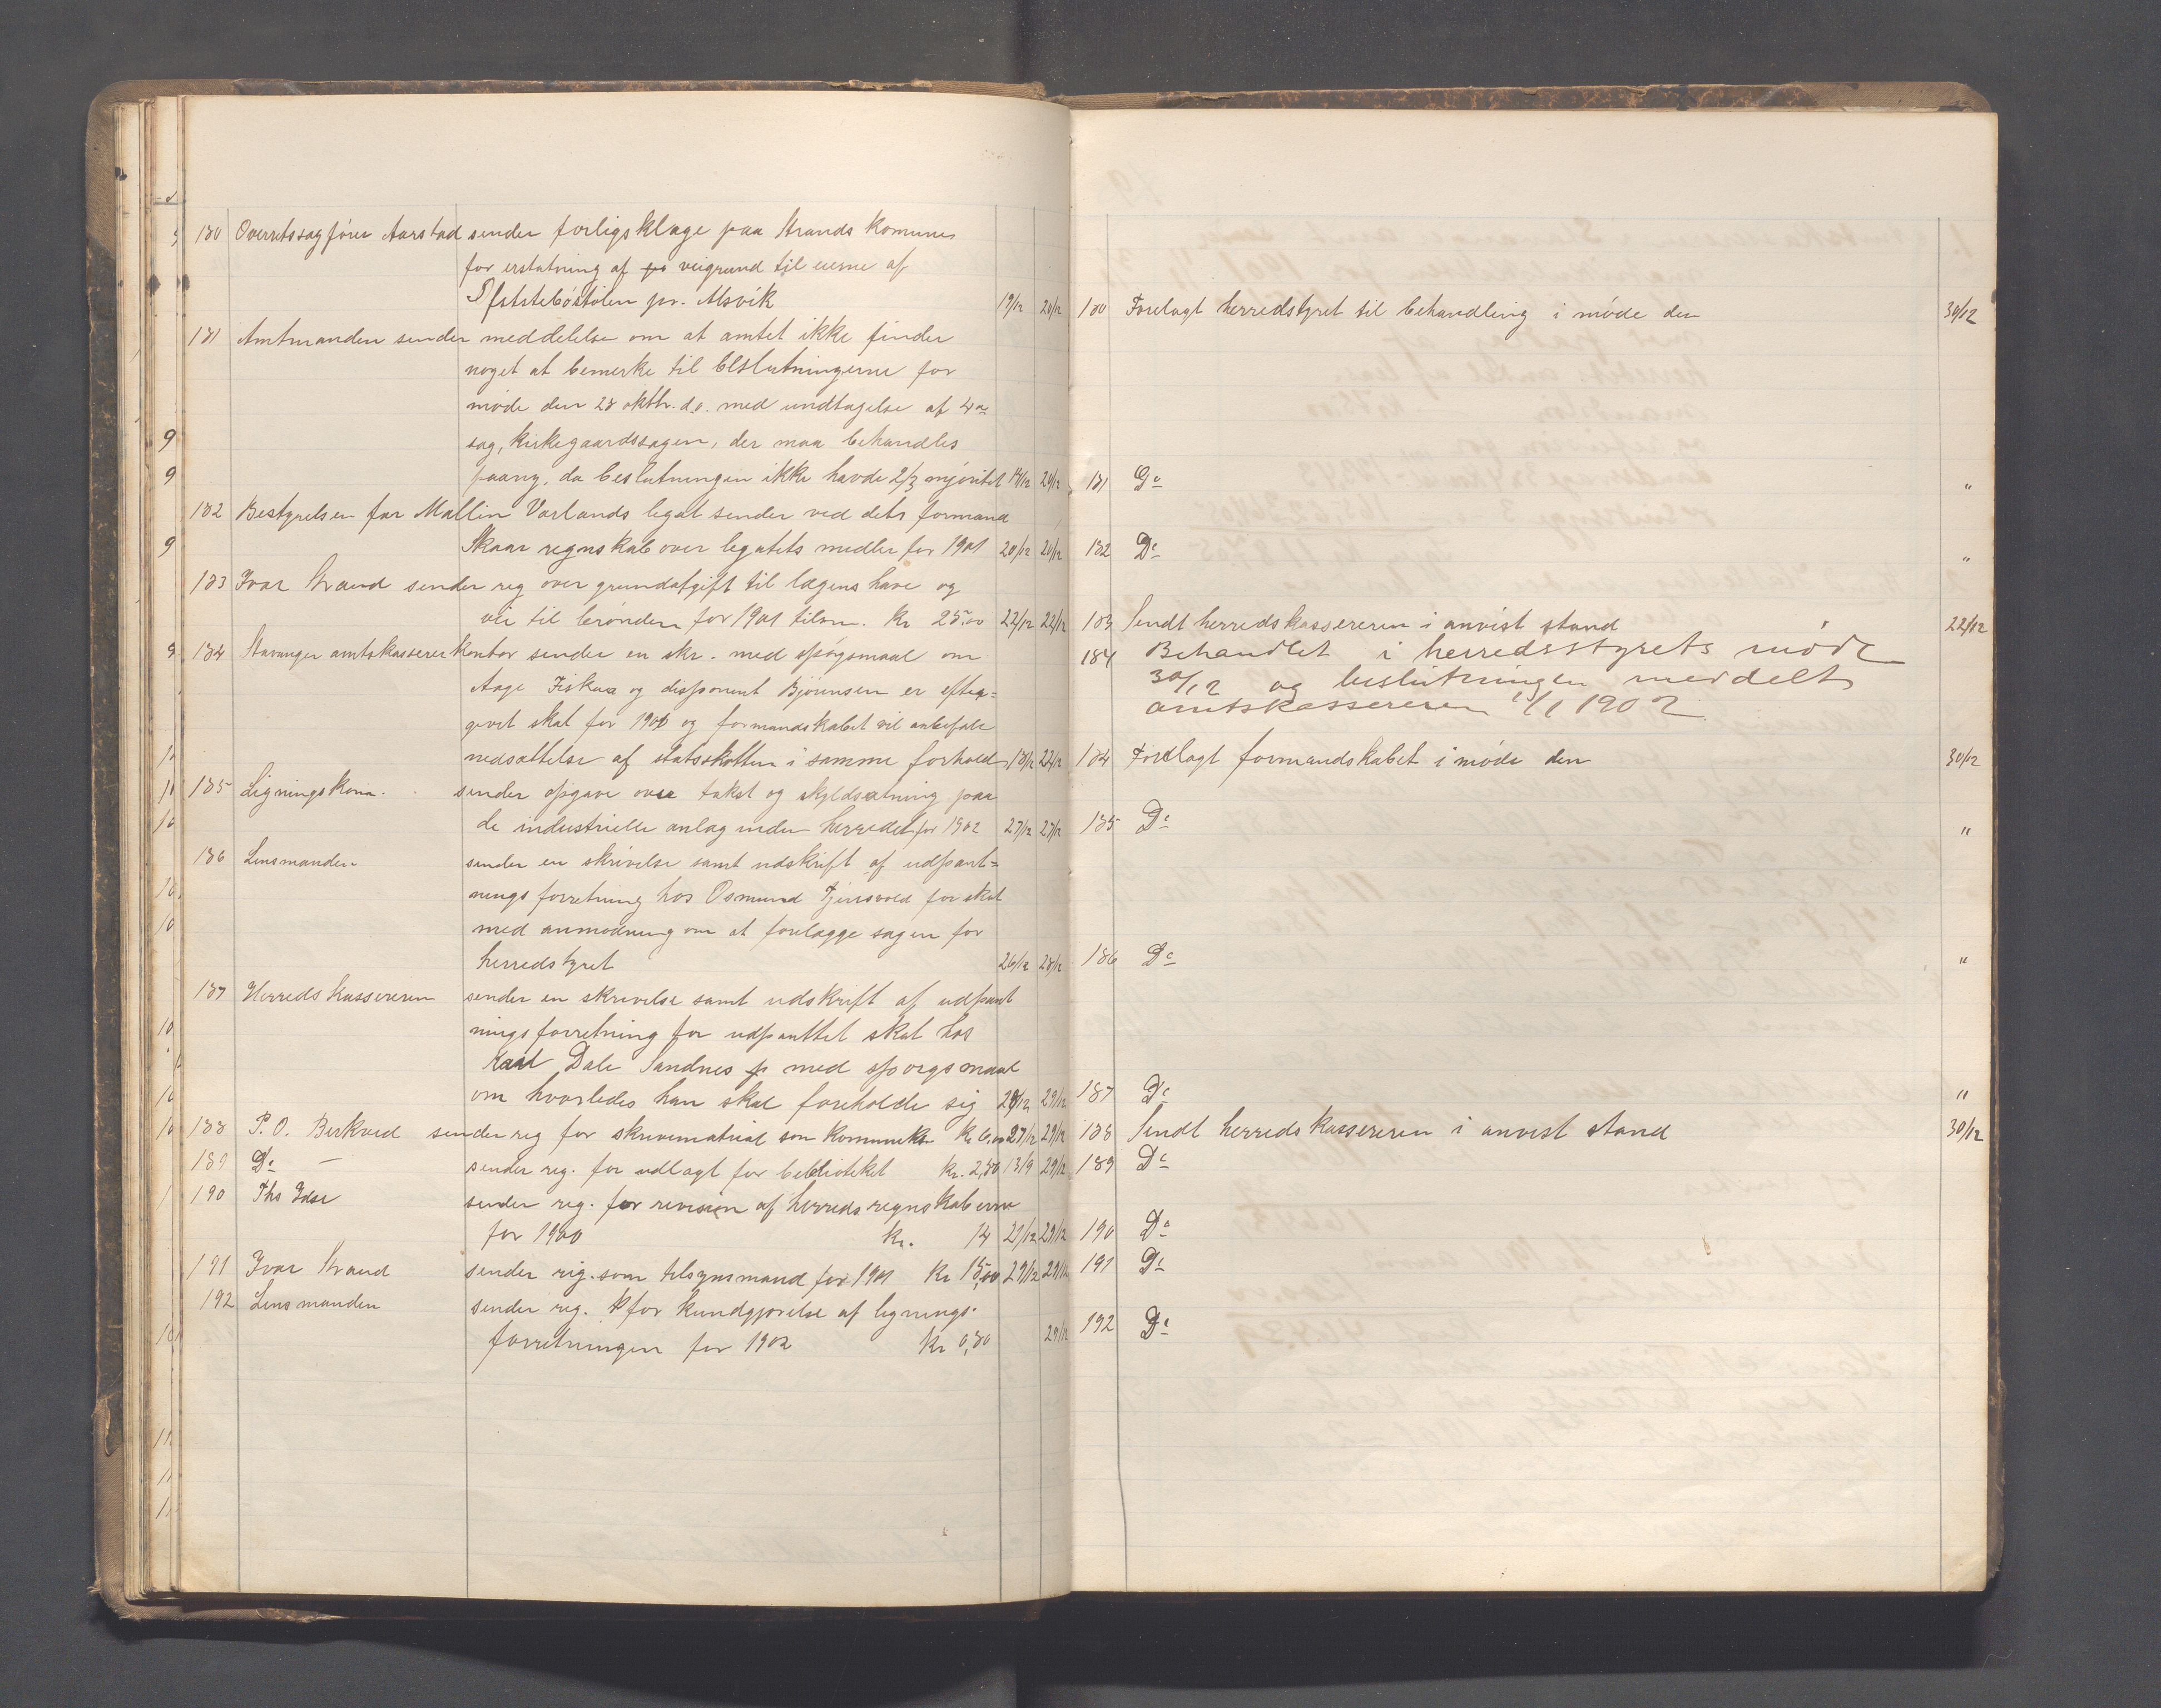 180 Overretssagfører Aarstad sender forligsklage paa Strands komune
for erstatning af veigrund til eierne af
pr. Alsvik 19/12 20/12
181 Amtmanden sender meddelelse om at amtet ikke finder
noget at bemerke til beslutningerne for
møde den 28 oktbr. d.a. med undtagelse af 4de
sag, kirkegaardssagen, der maa behandles
paany, da beslutningen ikke havde 2/3 majoritet 19/12 20/12
182 Bestyrelsen for Mallin Varlands legat sender ved dets formand
Skaar regnskab over legatets medler for 1901 20/12 20/12
183 Ivar Strand sender reg over grundafgift til lægens have og
vei til brønden for 1901 tilsm. Kr 25,00 22/12 22/12
184 Stavanger amtskassererkontor sender en skr. med spørgsmaal om
Aage Fiskaa og disponent Bjørnsen er efter=
givet skat for 1900 og formandskabet vil anbefale
nedsættelse af statsskatten i samme forhold 18/12 22/12
185 Ligningskom. sender opgave over takst og skyldsætning paa
de industrielle anlæg inden herredet for 1902 27/12 27/12
186 Lensmanden sender en skrivelse samt udskrift af udpant=
ningsforretning hos Osmund Tjensvold for skat
med anmodning om at forelægge sagen for
herredstyret 26/12 28/12
187 Herredskassereren sender en skrivelse samt udskrift af udpant
ningsforretning for udpanttet skat hos
Dale Sandnes med spørgsmaal
om hvorledes han skal foreholde sig 28/12 29/12
188 P. O. Berkved sender reg for skrivematrial som Kr 6,00 27/12 29/12
189 Do — sender reg. for udlagt for bebliotekt Kr. 2,80 13/9 29/12
190 Ths Idse sender reg. for revision af herredsregnskaberne
for 1900 Kr. 14 27/12 29/12
191 Ivar Strand sender reg. som tilsynsmand for 1901 Kr 15,00 29/12 29/12
192 Lensmanden sender reg. for kundgjørelse af lignings-
forretningen for 1902 Kr 0,80 29/12
180 Forelagt herredstyret til behandling i møde den 30/12
181 Do "
182 Do "
183 Sendt herredskassereren i anvist stand 22/12
184 Behandlet i herredsstyrets møde
30/12 og beslutningen meddelt
amtskassereren 11/1 1902
184 Forelagt formandskabet i møde den 30/12
185 Do "
186 Do "
187 Do "
188 Sendt herredskassereren i anvist stand 30/12
189 Do
190 Do
191 Do
192 Do